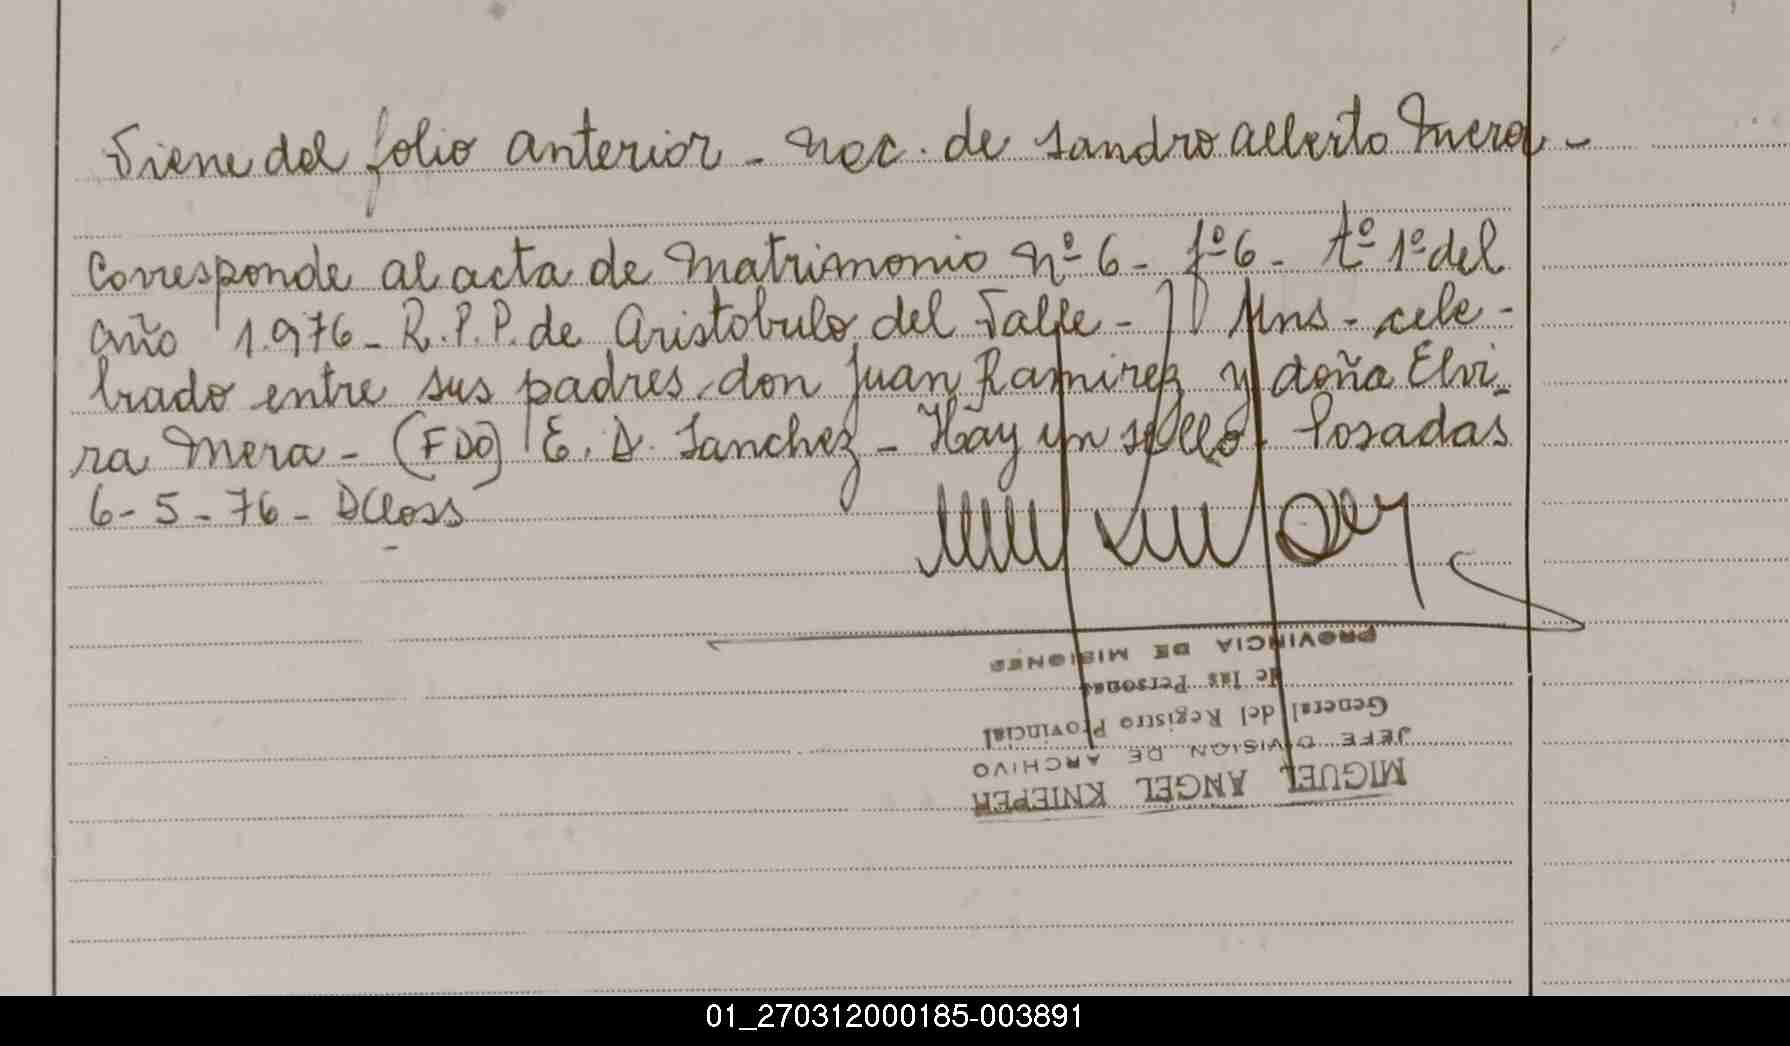 Viene del folio anterior - Nac. de Sandro Alberto Mera -
Corresponde al acta de matrimonio nº 6 - fº 6 - tº 1º del
año 1.976 - R.P.P. de Aristobulo del Valle - Mns - cele-
brado entre sus padres don Juan Ramirez y doña Elvi-
ra Mera - (FDO) E. D. Sanchez - Hay un sello. Posadas
6-5-76 - DCloss
PROVINCIA DE MISIONES
de las Personas
General del Registro Provincial
JEFE DIVISION DE ARCHIVO
MIGUEL ANGEL KNIEPER
01_270312000185-003891